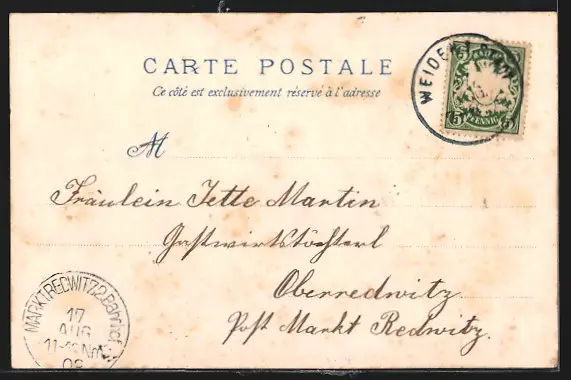 CARTE POSTALE
Ce côté est exclusivement réservé à l'adresse
WEIDEN
5 5
PFENNIG
M
Fräulein Jette Martin
Gastwirtstöchterl
Oberredwitz
Post Markt Redwitz.
MARKT REDWITZ 2. Bahnhof
17
AUG
11-12 Nm.